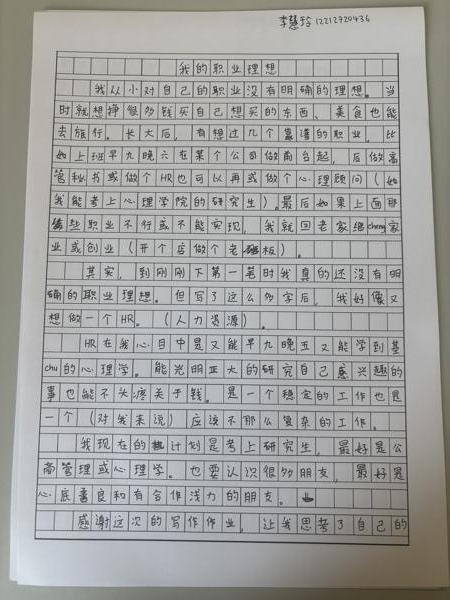 李慧玲 12212920436
我的职业理想
我从小对自己的职业没有明确的理想。当
时就想挣很多钱买自己想买的东西、美食也能
去旅行。长大后,有想过几个靠谱的职业,比
如上班早九晚六在某个公司做前台起,后做高
管秘书或做个HR也可以再或做个心理顾问(如
我能考上心理学院的研究生)。最后如果上面那
些职业不行或不能实现,我就回老家继cheng家
业或创业(开个店做个老板)。
其实,到刚刚下第一笔时我真的还没有明
确的职业理想。但写了这么多字后,我好像又
想做一个HR。(人力资源)。
HR在我心目中是又能早九晚五又能学到基
chu的心理学。能光明正大的研究自己感兴趣的
事也能不头疼关于钱。是一个稳定的工作也是
一个(对我来说)应该不那么复杂的工作。
我现在的计划是考上研究生,最好是公
商管理或心理学。也要认识很多朋友,最好是
心底善良和有合作浅力的朋友。
感谢这次的写作作业,让我思考了自己的